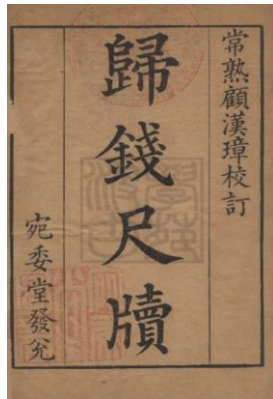 常熟顧漢璋校訂
歸錢尺牘
宛委堂發兌